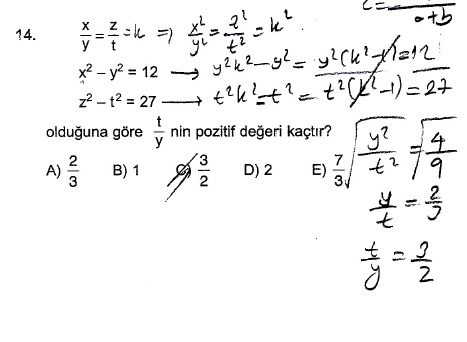 c = ─ a+b
14. x/y = z/t = k ⇒ x²/y² = z²/t² = k²
x² – y² = 12 → y²k² – y² = y²(k² – 1) = 12
z² – t² = 27 → t²k² – t² = t²(k² – 1) = 27
olduğuna göre t/y nin pozitif değeri kaçtır?
A) 2/3 B) 1 C) 3/2 D) 2 E) 7/3
√y²/t² = √4/9
y/t = 2/3
t/y = 3/2